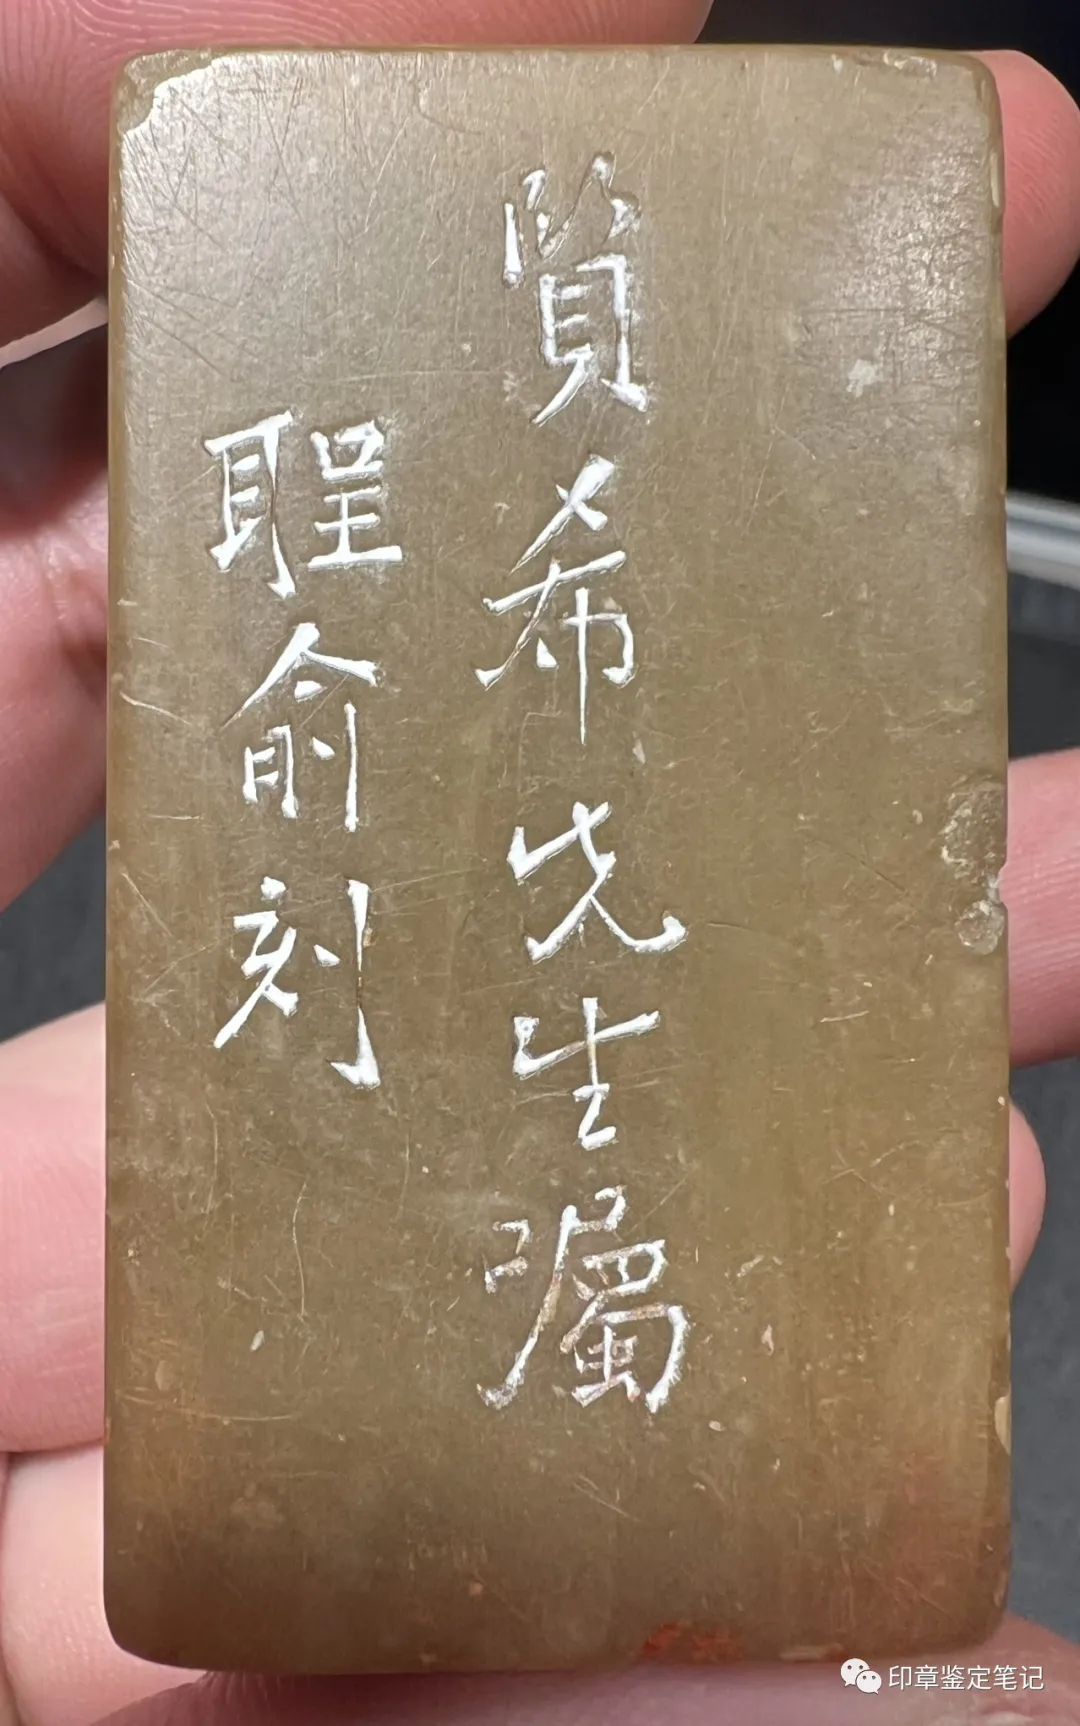 賢希先生囑
聖俞刻
印章鉴定笔记